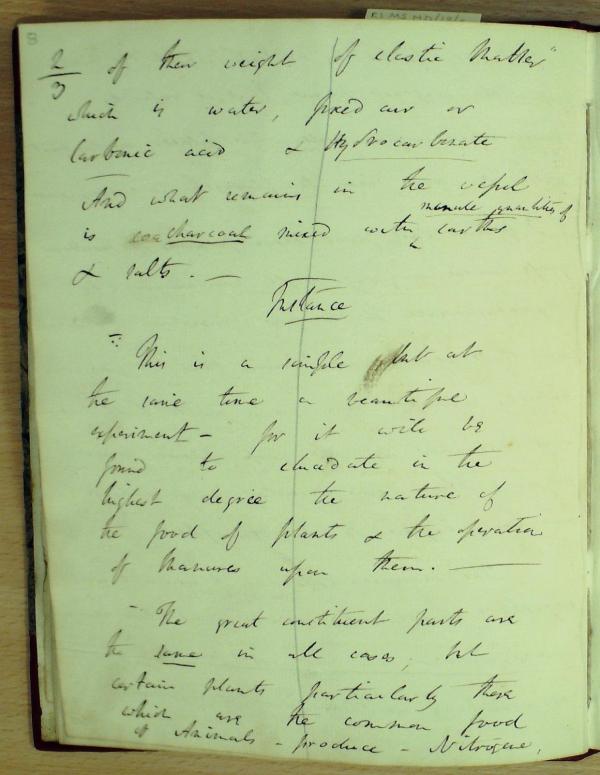 8
2/3 of their weight of elastic matter"
which is water, fixed air or
Carbonic acid & Hydrocarbonate
And what remains in the vessel
minute quantities of
is charcoal mixed with earths
& salts. —
Instance
This is a simple but at
the same time a beautiful
experiment — for it will be
found to elucidate in the
highest degree the nature of
the food of plants & the operation
of Manures upon them. —
— The great constituent parts are
the same in all cases; but
certain plants particularly those
which are the common food
of Animals — produce — Nitrogene,